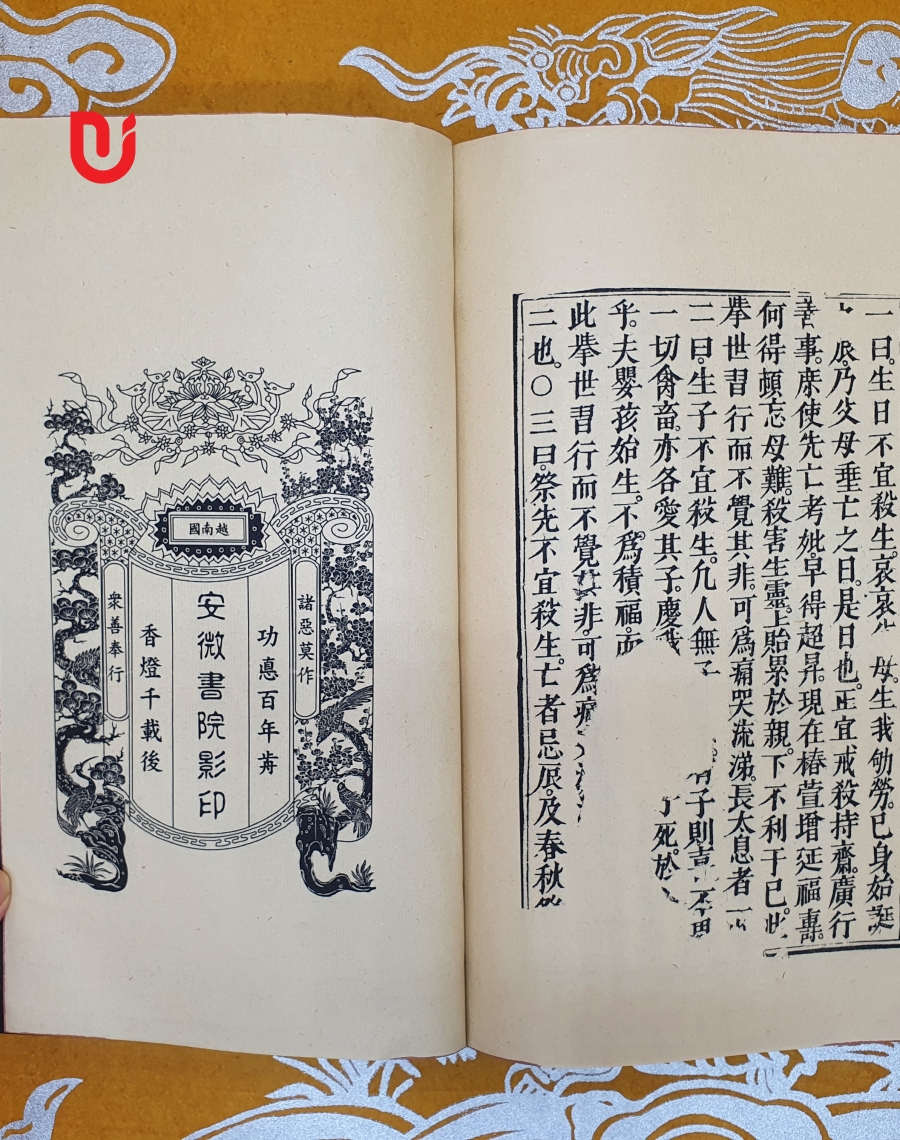 一曰。生日不宜殺生。哀哀母。生我劬勞。己身始誕
辰。乃父母垂亡之日。是日也。正宜戒殺持齋。廣行
善事。庶使先亡考妣。早得超昇。現在椿萱增延福壽。
何得頓忘母難。殺害生靈。上貽累於親。下不利于己。此
舉世習行而不覺其非。可爲痛哭流涕。長太息者一
二曰。生子不宜殺生。凡人無子則喜。不思
一切禽畜。亦各愛其子。慶死。於
乎。夫嬰孩始生。不爲積福。而
此舉世習行而不覺其非。可爲痛
二也。〇三曰。祭先不宜殺生。亡者忌辰。及春秋
越南國
諸惡莫作
功悳百年歬
安微書院影印
香燈千載後
衆善奉行